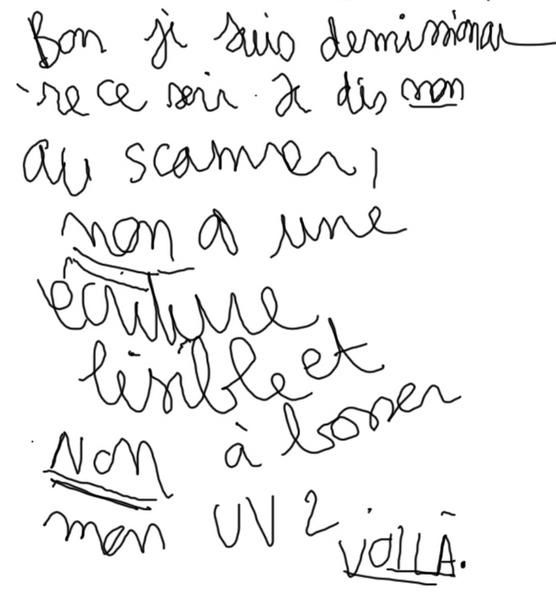 Bon je suis demissionai
re ce soir. Je dis non
au scanner,
non a une
écriture
lisible et
Non à bosser
mon UV2
VOILÀ.